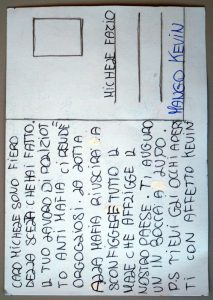 CARO MICHELE SONO FIERO
DELLA SCELTA CHE HAI FATTO.
IL TUO LAVORO DI POLIZIOT
TO ANTI MAFIA CI RENDE
ORGOGLIOSI. LA LOTTA
ALLA MAFIA RIUSCIRÀ A
SCONFIGGERE TUTTO IL
MALE CHE AFFLIGGE IL
NOSTRO PAESE TI AUGURO
UN IN BOCCA AL LUPO.
P.S TIENI GLI OCCHI APER
TI CON AFFETTO KEVIN
MICHELE FAZIO
MANGO KEVIN